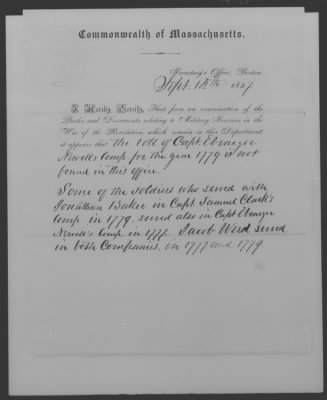 Commonwealth of Massachusetts.
Secretary's Office, Boston,
Sept. 14th 1857
I Hereby Certify, That from an examination of the
Books and Documents relating to Military Services in the
War of the Revolution, which remain in this Department,
it appears that the roll of Capt. Ebenezer
Newell's Comp. for the year 1779 is not
found in this office.
Some of the soldiers who served with
Jonathan Baker in Capt. Samuel Clark's
Comp. in 1779. served also in Capt Ebenezer
Newell's Comp. in 1777. Jacob Ward served
in both Companies, in 1777 and 1779.